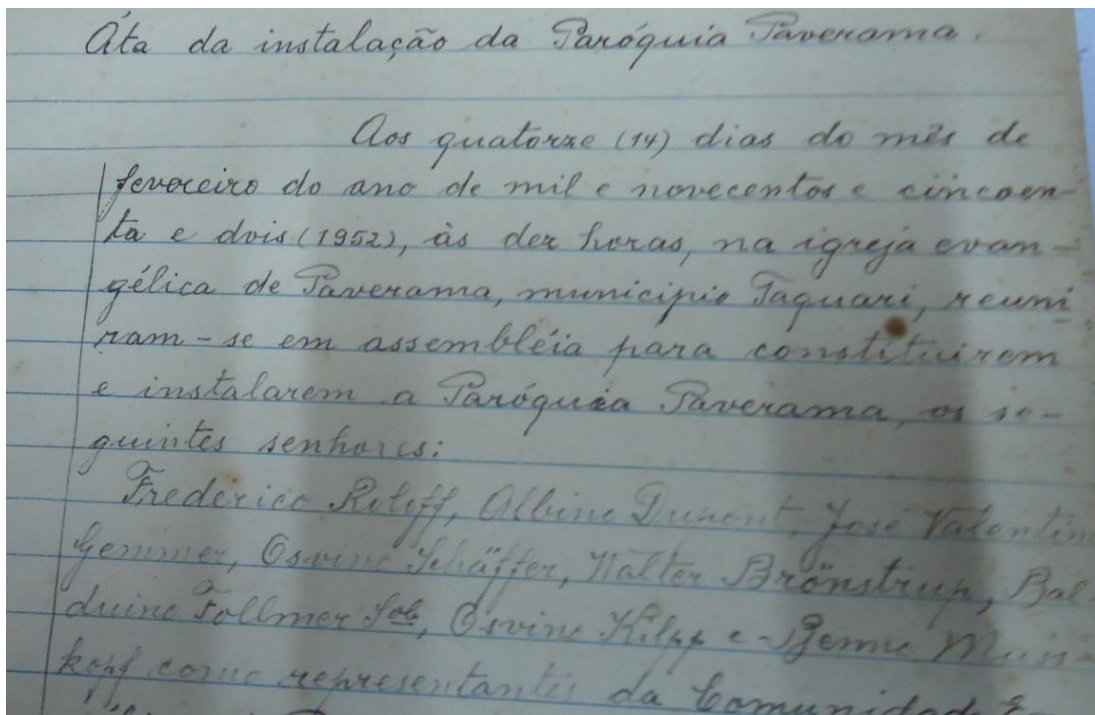 Áta da instalação da Paróquia Paverama.
Aos quatorze (14) dias do mês de
fevereiro do ano de mil e novecentos e cincoen-
ta e dois (1952), às dez horas, na igreja evan-
gélica de Paverama, municipio Taquari, reuni
ram-se em assembléia para constituirem
e instalarem a Paróquia Paverama, os se-
guintes senhores:
Frederico Roloff, Albino Dupont, José Valentin
Gemmer, Osvino Schäffer, Walter Brönstrup, Bal-
duino Follmer Sob, Osvino Kilpp e Benno Mun-
kopf como representantes da Comunidade